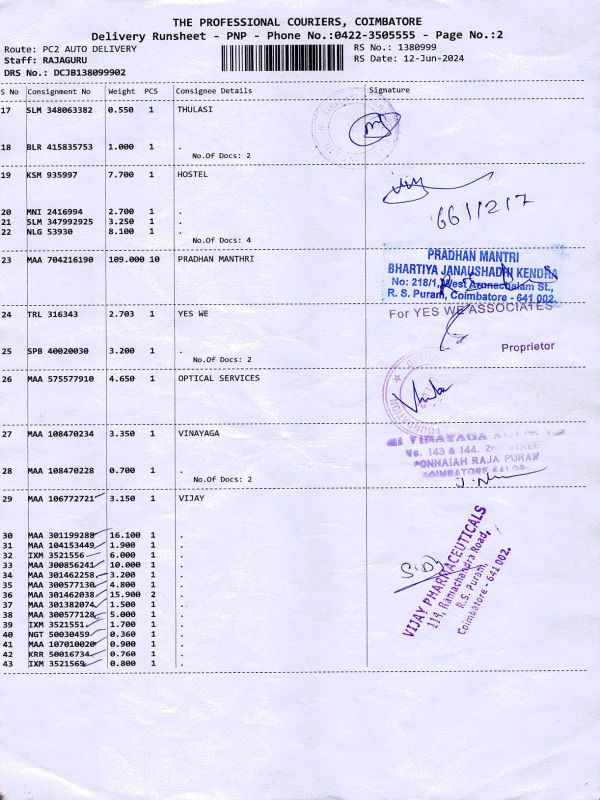 THE PROFESSIONAL COURIERS, COIMBATORE
Delivery Runsheet - PNP - Phone No.:0422-3505555 - Page No.:2
Route: PC2 AUTO DELIVERY
RS No.: 1380999
Staff: RAJAGURU
RS Date: 12-Jun-2024
DRS No.: DCJB138099902
S No Consignment No Weight PCS Consignee Details Signature
17 SLM 348063382 0.550 1 THULASI
18 BLR 415835753 1.000 1 .
No.Of Docs: 2
19 KSM 935997 7.700 1 HOSTEL
6611217
20 MNI 2416994 2.700 1 .
21 SLM 347992925 3.250 1 .
22 NLG 53930 8.100 1 .
No.Of Docs: 4
23 MAA 704216190 109.000 10 PRADHAN MANTHRI
PRADHAN MANTRI
BHARTIYA JANAUSHADHI KENDRA
No: 218/1, West Arunachalam St.,
R. S. Puram, Coimbatore - 641 002.
24 TRL 316343 2.703 1 YES WE
For YES WE ASSOCIATES
Proprietor
25 SPB 40020030 3.200 1 .
No.Of Docs: 2
26 MAA 575577910 4.650 1 OPTICAL SERVICES
27 MAA 108470234 3.350 1 VINAYAGA
VINAYAGA
No. 143 & 144, 2nd STREET
PONNAIAH RAJA PURAM
COIMBATORE
28 MAA 108470228 0.700 1 .
No.Of Docs: 2
29 MAA 106772721 3.150 1 VIJAY
30 MAA 301199288 16.100 1 .
31 MAA 104153449 1.900 1 .
32 IXM 3521556 6.000 1 .
33 MAA 300856241 10.000 1 .
34 MAA 301462258 3.200 1 .
35 MAA 300577130 4.800 1 .
36 MAA 301462038 15.900 2 .
37 MAA 301382074 1.500 1 .
38 MAA 300577128 5.000 1 .
39 IXM 3521551 1.700 1 .
40 NGT 50030459 0.360 1 .
41 MAA 107010020 0.900 1 .
42 KRR 50016734 0.760 1 .
43 IXM 3521569 0.800 1 .
VIJAY PHARMACEUTICALS
114, Ramachandra Road,
R.S. Puram,
Coimbatore - 641 002.